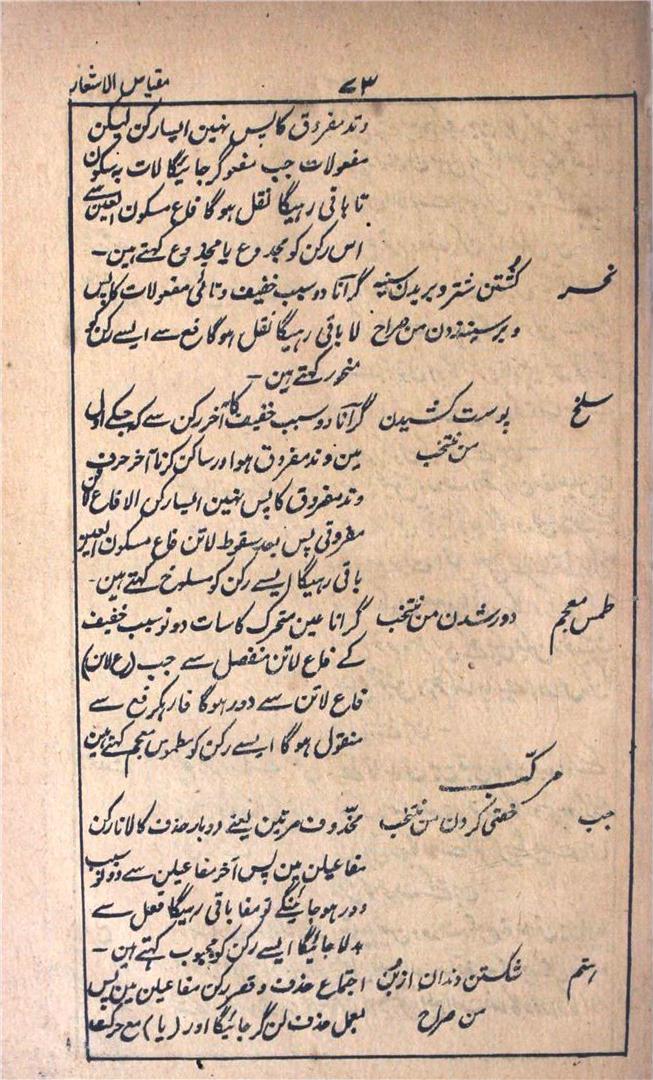 مقیاس الاشعار ۷۳
وتد مفروق کا پس نہین ایسا رکن لیکن
مفعولات جب مفعو گر جائیگا لات بہ سکون
تا باقی رہیگا نقل ہوگا فاع مسکون العین سے
اس رکن کو مجدوع یا مجدوع کہتے ہین۔
نحر کُشتن شتر و بریدن سینہ گرانا دو سبب خفیف و تائی مفعولات کا پس
و بر سینہ زدن من صراح لا باقی رہیگا نقل ہوگا رفع سے ایسے رکن کو
منحور کہتے ہین۔
سلخ پوست کشیدن گرانا دو سبب خفیف کا آخر رکن سے کہ جسکے اول
من منتخب مین وتد مفروق ہو اور ساکن کرنا آخر حرف
وتد مفروق کا پس نہین ایسا رکن الا فاع لاتن
مفروقی پس بعد سقوط لاتن فاع مسکون العین
باقی رہیگا ایسے رکن کو مسلوخ کہتے ہین۔
طمس معجم دور شدن من منتخب گرانا عین متحرک کا سات دونو سبب خفیف
کے فاع لاتن منفصل سے جب (ع لاتن)
فاع لاتن سے دور ہوگا فا رہکر فع سے
منقول ہوگا ایسے رکن کو مطموس معجم کہتے ہین
مرکب
جب خصی کردن من منتخب محذوف مرتین یعنے دوبار حذف کا لانا رکن
مفاعیلن مین پس آخر مفاعیلن سے دونو سبب
دور ہو جائینگے تو مفا باقی رہیگا فعل سے
بدلا جائیگا ایسے رکن کو مجبوب کہتے ہین۔
اہتم شکستن دندان از بن اجتماع حذف و قصر رکن مفاعیلن مین پس
من صراح بعمل حذف لن گر جائیگا اور (یا) مع حرکت